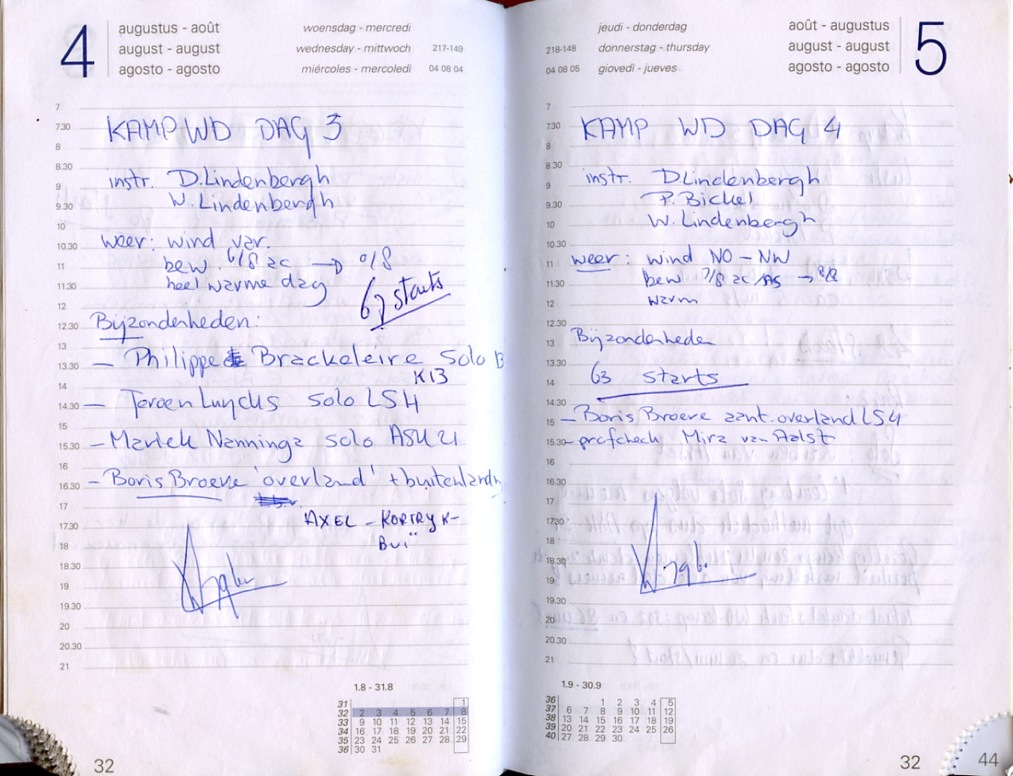 4
augustus - août
august - august
agosto - agosto
woensdag - mercredi
wednesday - mittwoch 217-149
miércoles - mercoledì 04 08 04
7
7.30 KAMP WD DAG 3
8
8.30
9 instr. D. Lindenbergh
9.30 W. Lindenbergh
10
10.30 weer: wind var.
11 bew. 6/8 ac → 0/8
11.30 heel warme dag
12 67 starts
12.30 Bijzonderheden:
13
13.30 — Philippe Brackeleire solo B
14 K13
14.30 — Jeroen Luycks solo LS4
15
15.30 — Mariek Nanninga solo ASK 21
16
16.30 — Boris Broeve 'overland' + buitenland
17
17.30 AXEL - KORTRYK-
18 Bui"
18.30
19
19.30
20
20.30
21
1.8 - 31.8
31 1
32 2 3 4 5 6 7 8
33 9 10 11 12 13 14 15
34 16 17 18 19 20 21 22
35 23 24 25 26 27 28 29
36 30 31
32
jeudi - donderdag
218-148 donnerstag - thursday
04 08 05 giovedì - jueves
août - augustus
august - august
agosto - agosto
5
7
7.30 KAMP WD DAG 4
8
8.30
9 instr. D Lindenbergh
9.30 P. Bickel
10 W. Lindenbergh
10.30
11 weer: wind NO - NW
11.30 bew 7/8 ac/AS → 8/8
12 warm
12.30
13 Bijzonderheden
13.30
14 63 starts
14.30
15 — Boris Broeve aant. overland LS4
15.30 — profcheck Mira van Aalst
16
16.30
17
17.30
18
18.30
19
19.30
20
20.30
21
1.9 - 30.9
36 1 2 3 4 5
37 6 7 8 9 10 11 12
38 13 14 15 16 17 18 19
39 20 21 22 23 24 25 26
40 27 28 29 30
32 44